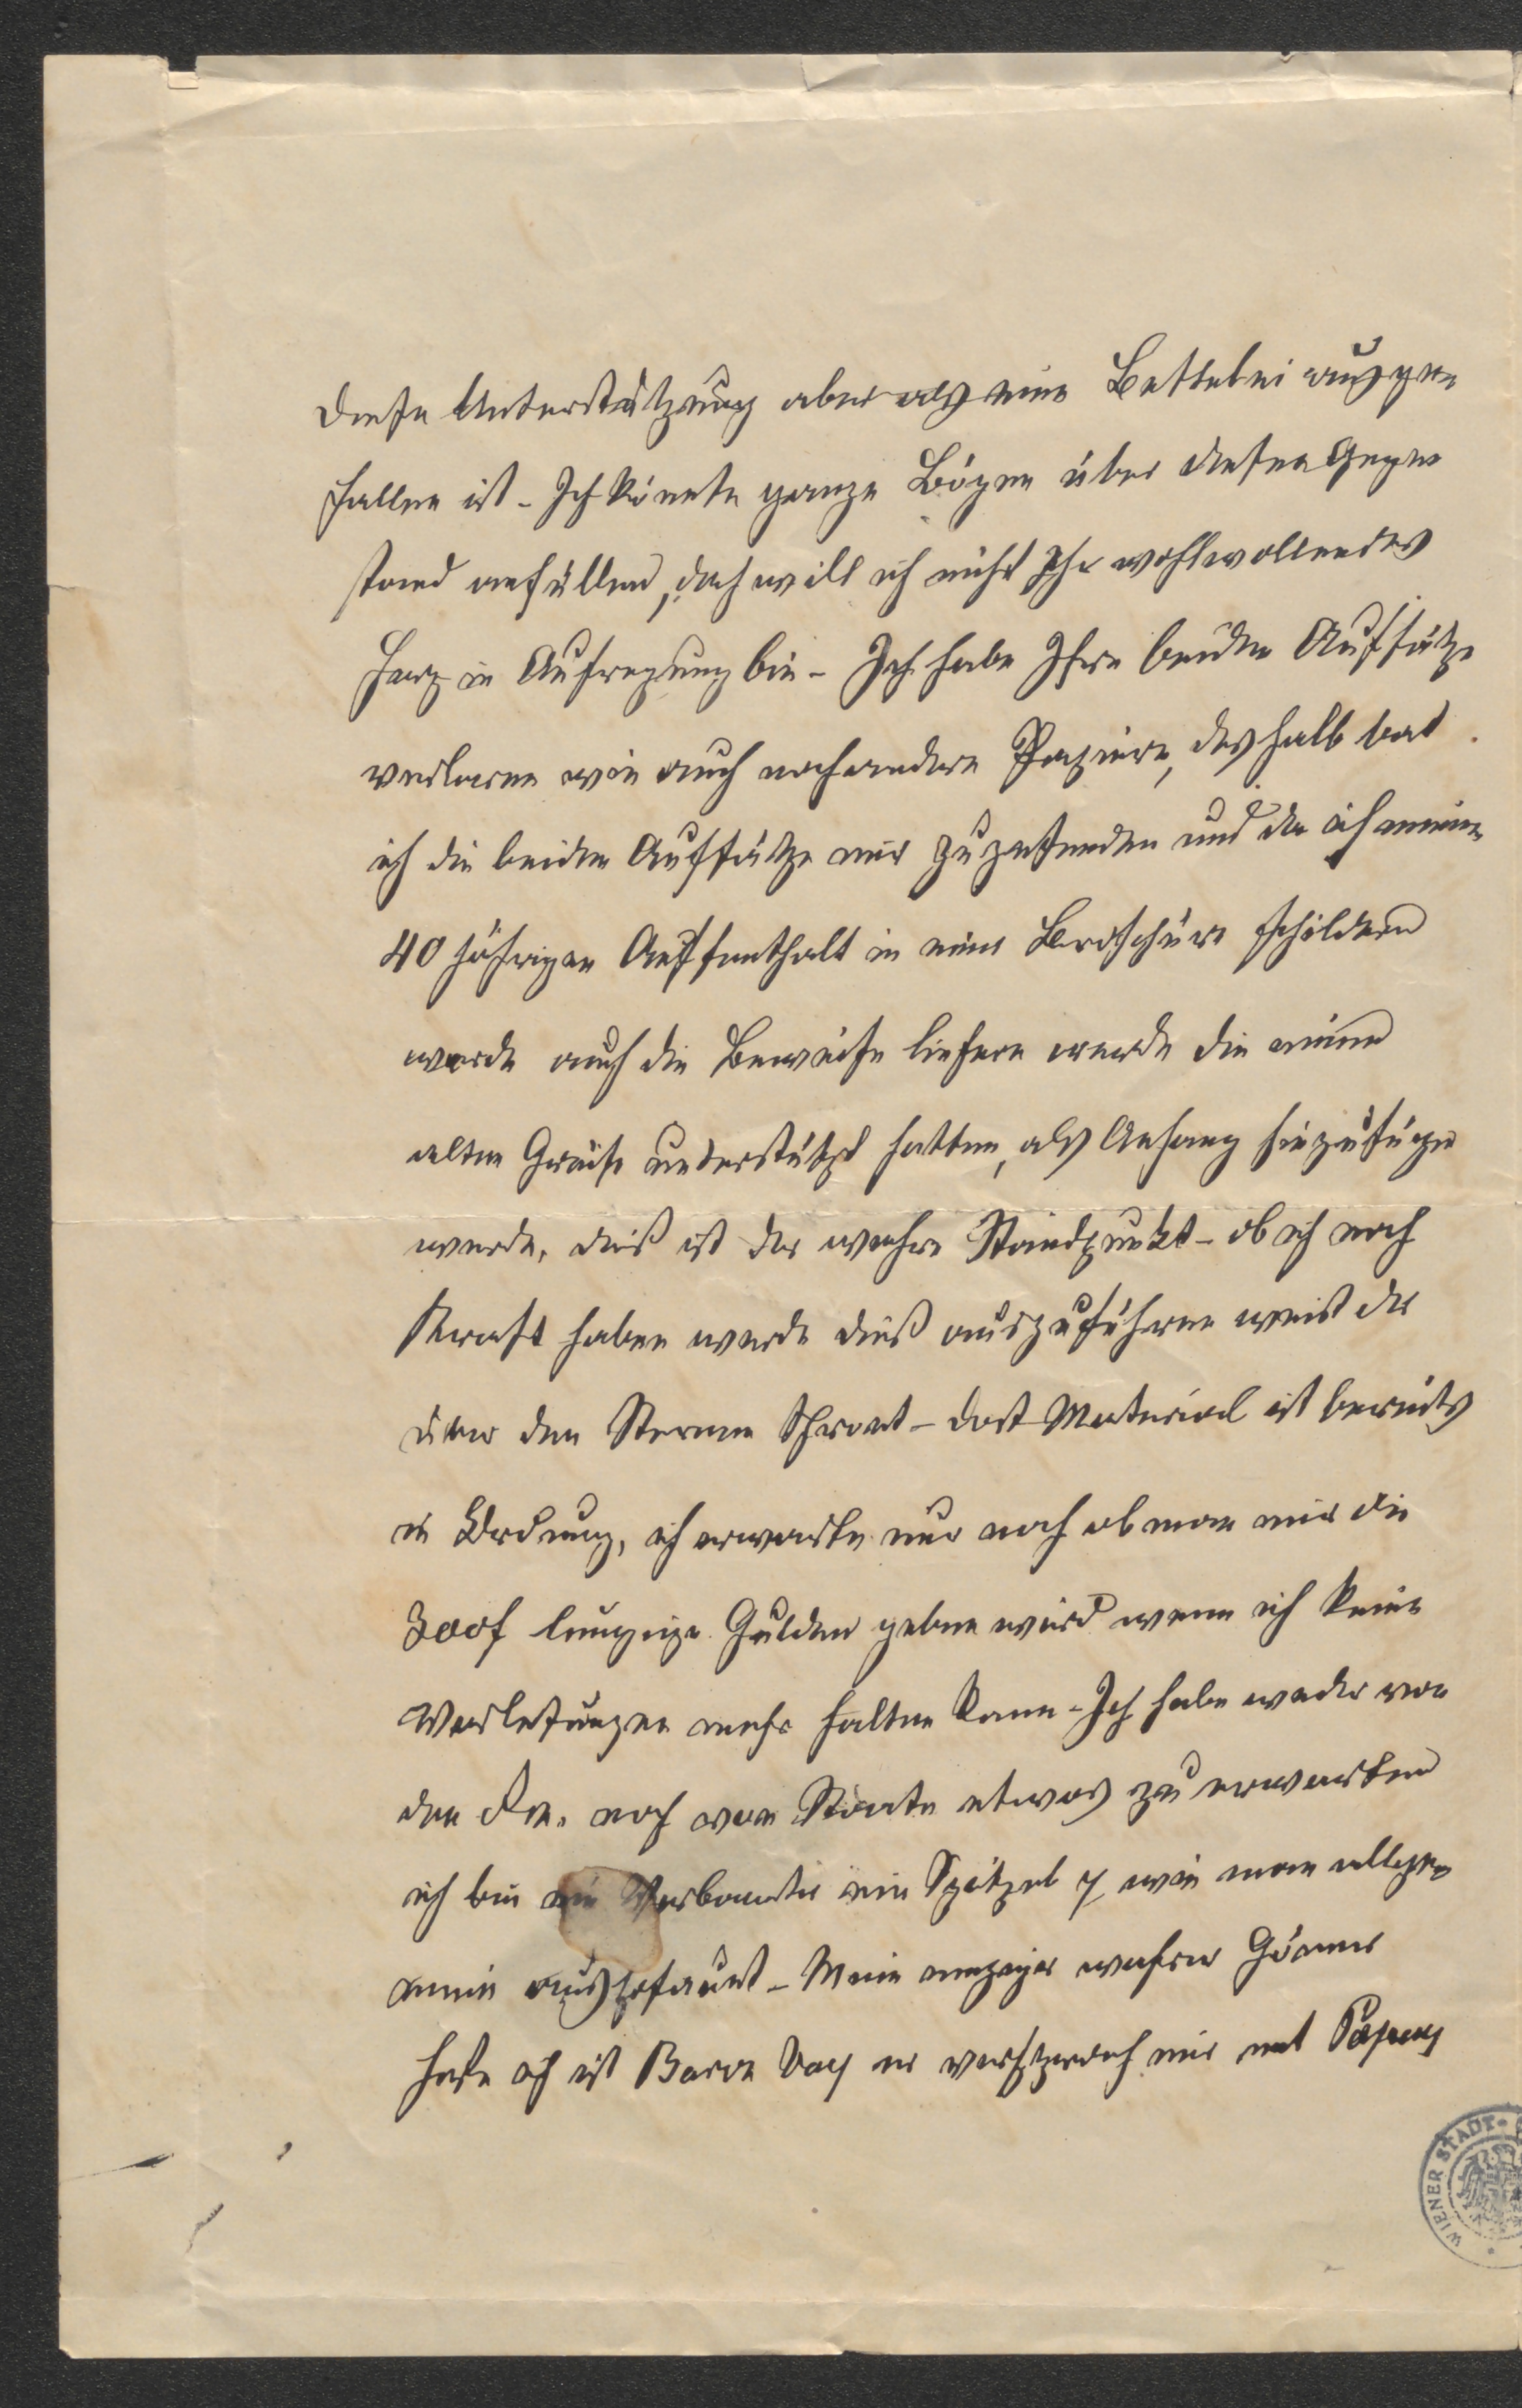 diese Unterstützung aber als eine Bettelei ausge
fallen ist - Ich könnte ganze Bögen über diesen Gegen
stand anfüllen, doch will ich nicht Ihr wohlwollendes
Herz in Aufregung bin - Ich habe Ihre beiden Aufsätze
verloren wie auch noch andere Papiere, deshalb bat
ich die beiden Aufsätze mir zuzusenden und da ich meinen
40 jährigen Aufenthalt in einer Broschüre schildern
werde auch die Beweise liefern werde die einen
alten Greise unterstützt hatten, als Anhang hinzufügen
werde, dies ist der wahre Standpunkt - ob ich noch
Kraft haben werde dies auszuführen weist der
über den Sternen thront - das Material ist bereits
in Ordnung, ich erwarte nur noch ob man mir die
300f Gulden geben wird wenn ich keine
Vorlesungen mehr halten kann - Ich habe weder von
den noch vom Staate etwas zu erwarten
ich bin ein Verbannter ein Spitzel wie man allge
mein ausposaunt - Mein einziger wahrer Gönner
ist Baron Vay er versprach mir mit
WIENER STADT-